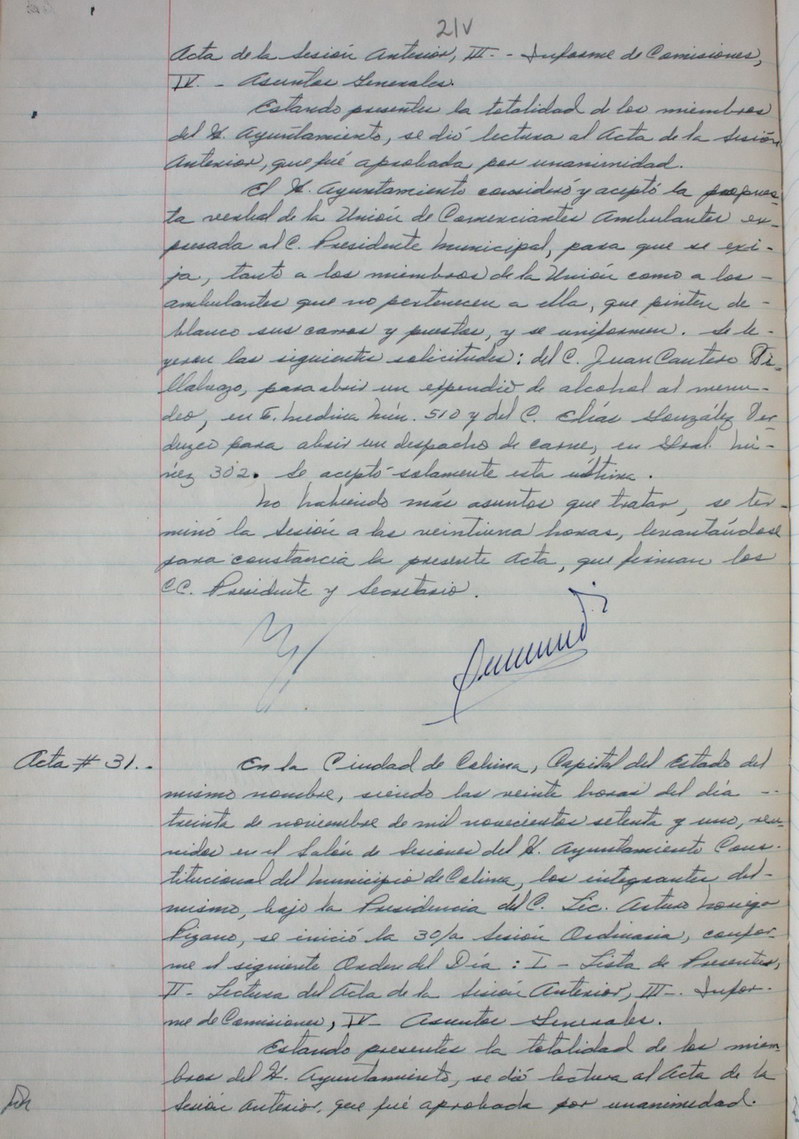 21V
Acta de la Sesión Anterior, III.- Informe de Comisiones,
IV.- Asuntos Generales.
Estando presentes la totalidad de los miembros
del H. Ayuntamiento, se dió lectura al Acta de la Sesión
Anterior, que fué aprobada por unanimidad.
El H. Ayuntamiento consideró y aceptó la propues-
ta verbal de la Unión de Comerciantes Ambulantes ex-
presada al C. Presidente Municipal, para que se exi-
ja, tanto a los miembros de la Unión como a los-
ambulantes que no pertenecen a ella, que pinten de-
blanco sus carros y puestos, y se uniformen. Se le-
yeron las siguientes solicitudes: del C. Juan Cantero Di-
llabazo, para abrir un expendio de alcohol al menu-
deo, en E. Medina Núm. 510 y del C. Elías González Ver-
duzco para abrir un despacho de carne, en Gral. Nú-
ñez 302. Se aceptó solamente esta última.
No habiendo más asuntos que tratar, se ter-
minó la Sesión a las veintiuna horas, levantándose
para constancia la presente Acta, que firman los
CC. Presidente y Secretario.
Acta # 31.-
En la Ciudad de Colima, Capital del Estado del
mismo nombre, siendo las veinte horas del día --
treinta de noviembre de mil novecientos setenta y uno, reu-
nidos en el Salón de Sesiones del H. Ayuntamiento Cons-
titucional del Municipio de Colima, los integrantes del-
mismo, bajo la Presidencia del C. Lic. Arturo Noriega
Pizano, se inició la 30/a Sesión Ordinaria, confor-
me el siguiente Orden del Día: I- Lista de Presentes,
II- Lectura del Acta de la Sesión Anterior, III-. Infor-
me de Comisiones, IV- Asuntos Generales.
Estando presentes la totalidad de los miem-
bros del H. Ayuntamiento, se dió lectura al Acta de la
Sesión Anterior, que fué aprobada por unanimidad.